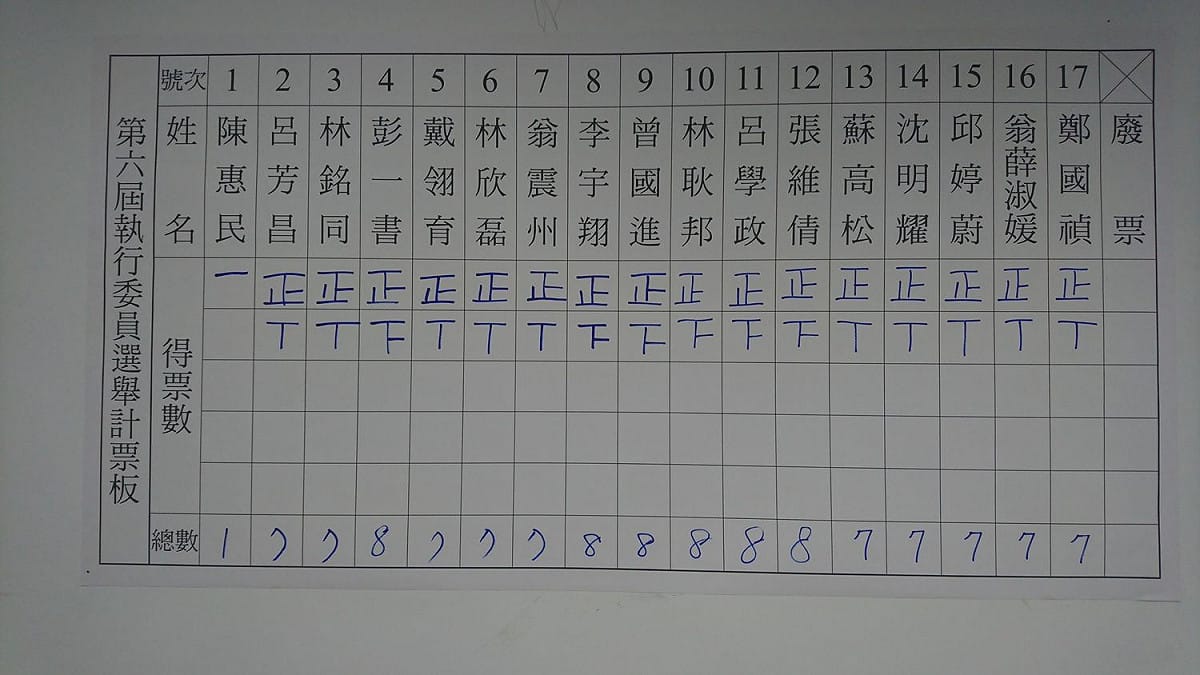 第六屆執行委員選舉計票板
號次 1 2 3 4 5 6 7 8 9 10 11 12 13 14 15 16 17
姓名 陳惠民 呂芳昌 林銘同 彭一書 戴翎育 林欣磊 翁震州 李宇翔 曾國進 林耿邦 呂學政 張維倩 蘇高松 沈明耀 邱婷蔚 翁薛淑媛 鄭國禎 廢票
得票數 一 正 正 正 正 正 正 正 正 正 正 正 正 正 正 正 正
丅 丅 下 丅 丅 丅 下 下 下 下 下 丅 丅 丅 丅 丅
總數 1 7 7 8 7 7 7 8 8 8 8 8 7 7 7 7 7